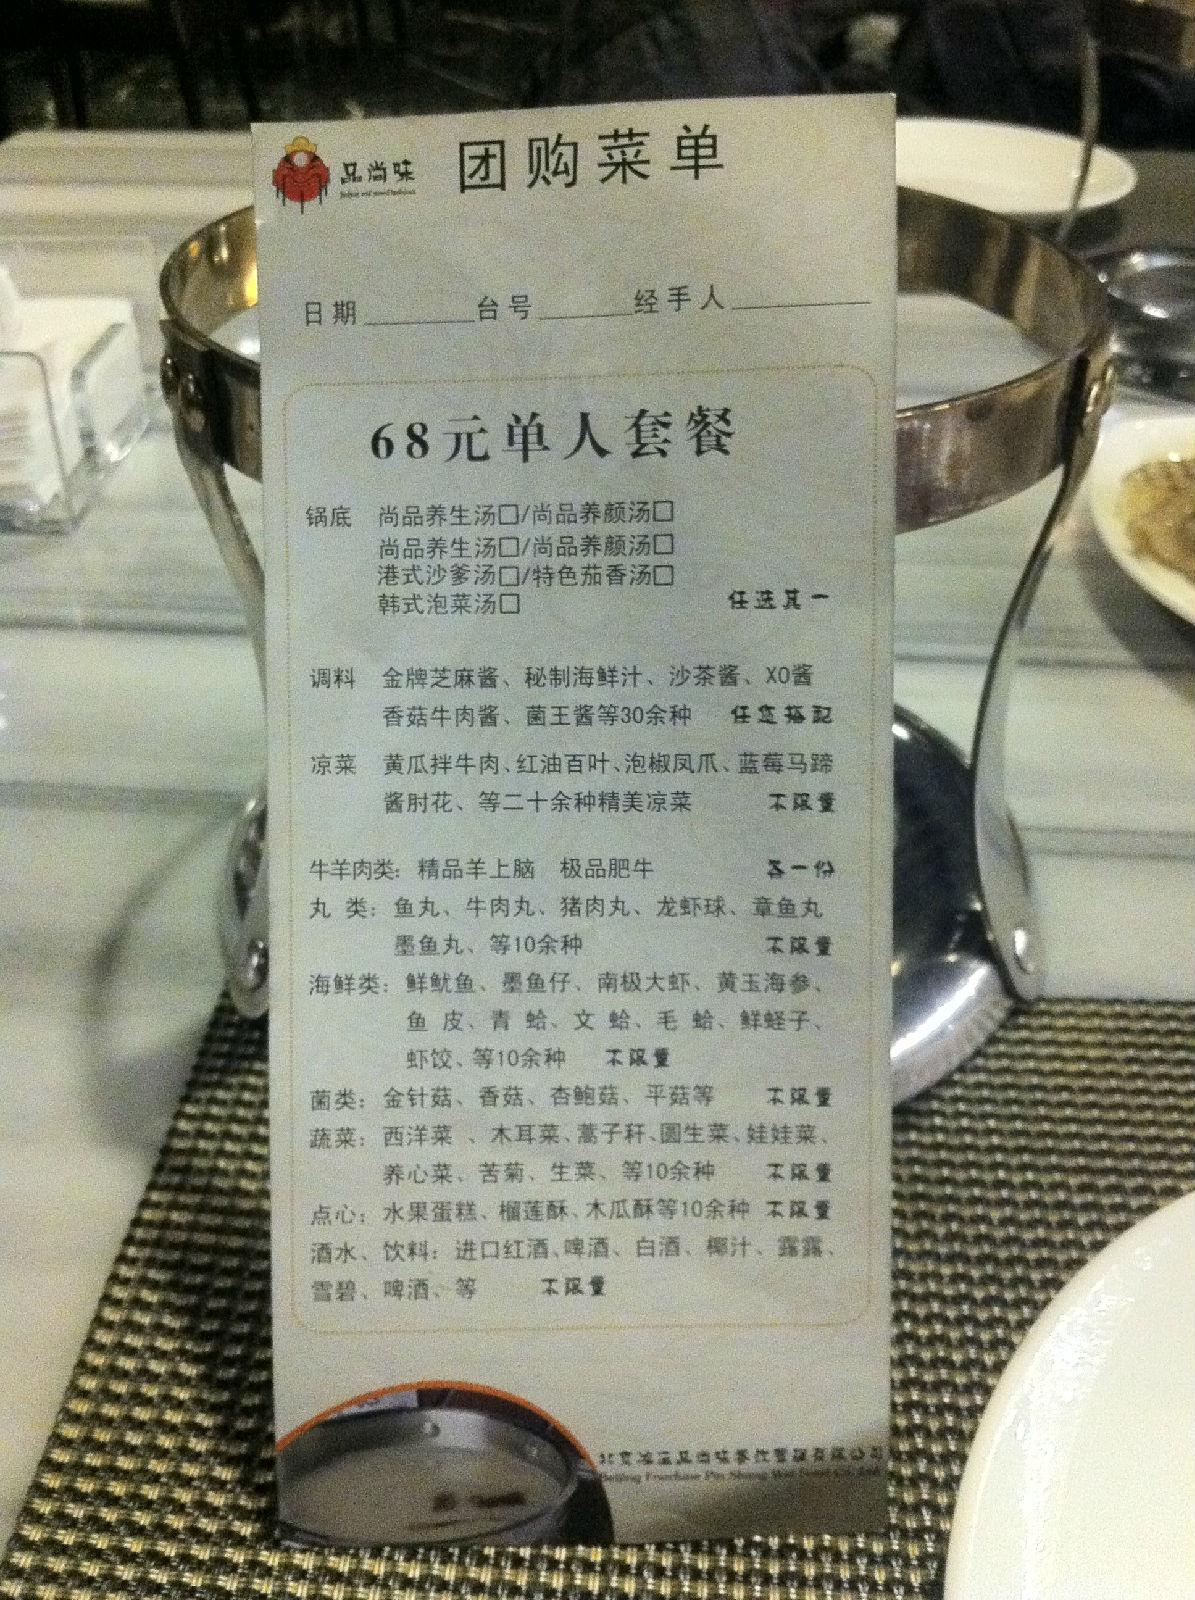 品尚味 团购菜单
日期________台号______经手人________
68元单人套餐
锅底 尚品养生汤□/尚品养颜汤□
尚品养生汤□/尚品养颜汤□
港式沙爹汤□/特色茄香汤□
韩式泡菜汤□ 任选其一
调料 金牌芝麻酱、秘制海鲜汁、沙茶酱、XO酱
香菇牛肉酱、菌王酱等30余种 任您搭配
凉菜 黄瓜拌牛肉、红油百叶、泡椒凤爪、蓝莓马蹄
酱肘花、等二十余种精美凉菜 不限量
牛羊肉类：精品羊上脑 极品肥牛 各一份
丸 类：鱼丸、牛肉丸、猪肉丸、龙虾球、章鱼丸
墨鱼丸、等10余种 不限量
海鲜类：鲜鱿鱼、墨鱼仔、南极大虾、黄玉海参、
鱼 皮、青 蛤、文 蛤、毛 蛤、鲜蛏子、
虾饺、等10余种 不限量
菌类：金针菇、香菇、杏鲍菇、平菇等 不限量
蔬菜：西洋菜 、木耳菜、蒿子秆、圆生菜、娃娃菜、
养心菜、苦菊、生菜、等10余种 不限量
点心：水果蛋糕、榴莲酥、木瓜酥等10余种 不限量
酒水、饮料：进口红酒、啤酒、白酒、椰汁、露露、
雪碧、啤酒、等 不限量
品尚味餐饮管理有限公司
Beijing